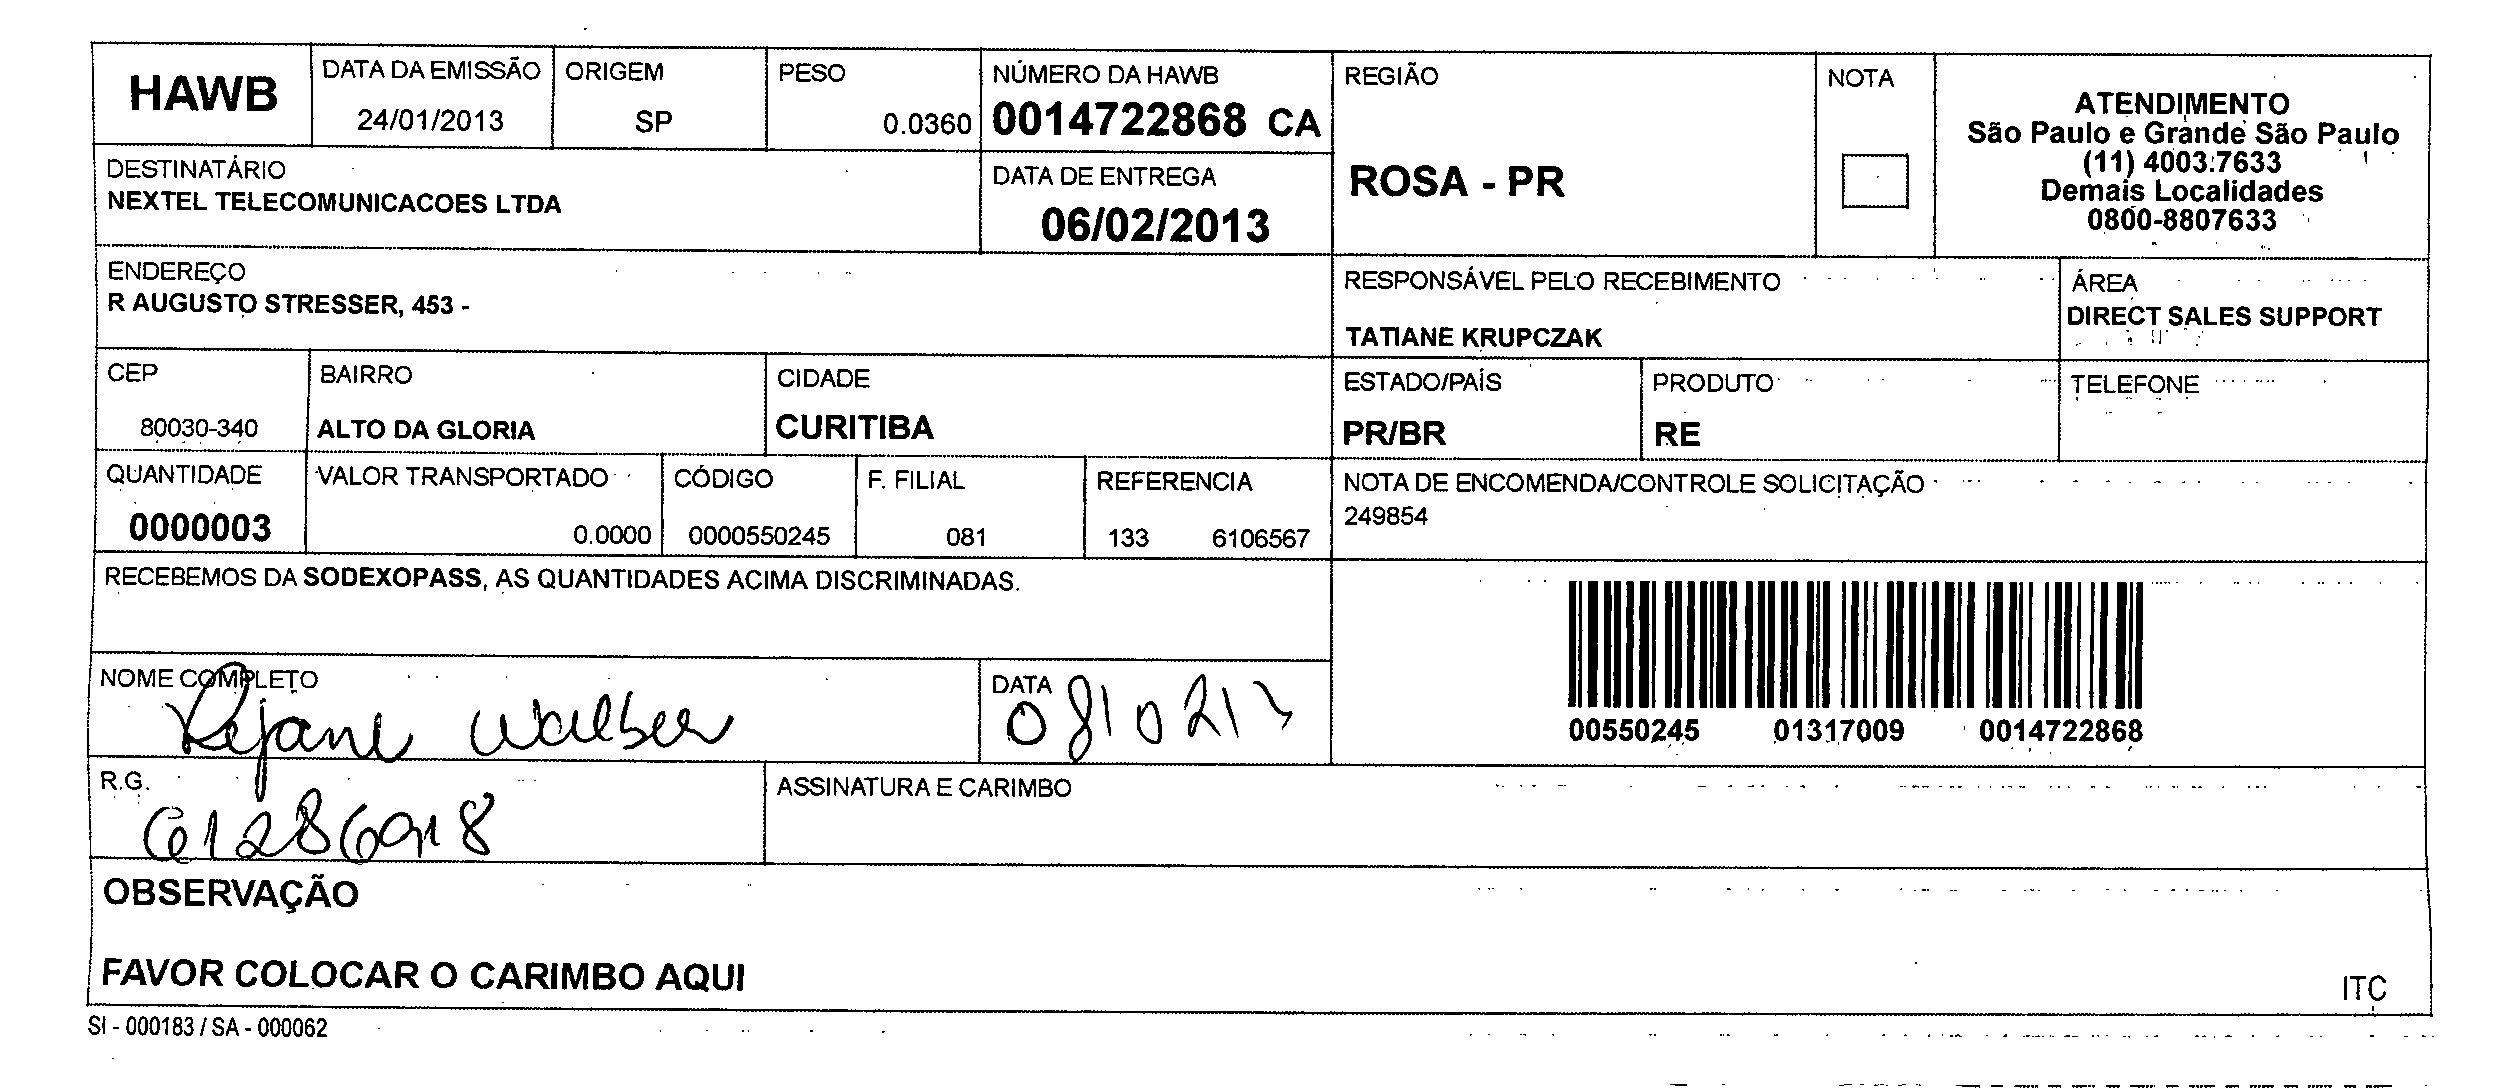 HAWB
DATA DA EMISSÃO
24/01/2013
ORIGEM
SP
PESO
0.0360
NÚMERO DA HAWB
0014722868 CA
REGIÃO
ROSA - PR
NOTA
ATENDIMENTO
São Paulo e Grande São Paulo
(11) 4003.7633
Demais Localidades
0800-8807633
DESTINATÁRIO
NEXTEL TELECOMUNICACOES LTDA
DATA DE ENTREGA
06/02/2013
ENDEREÇO
R AUGUSTO STRESSER, 453 -
RESPONSÁVEL PELO RECEBIMENTO
TATIANE KRUPCZAK
ÁREA
DIRECT SALES SUPPORT
CEP
80030-340
BAIRRO
ALTO DA GLORIA
CIDADE
CURITIBA
ESTADO/PAÍS
PR/BR
PRODUTO
RE
TELEFONE
QUANTIDADE
0000003
VALOR TRANSPORTADO
0.0000
CÓDIGO
0000550245
F. FILIAL
081
REFERENCIA
133 6106567
NOTA DE ENCOMENDA/CONTROLE SOLICITAÇÃO
249854
RECEBEMOS DA SODEXOPASS, AS QUANTIDADES ACIMA DISCRIMINADAS.
00550245 01317009 0014722868
NOME COMPLETO
Rejane Walber
DATA
R.G.
61286918
ASSINATURA E CARIMBO
OBSERVAÇÃO
FAVOR COLOCAR O CARIMBO AQUI
ITC
SI - 000183 / SA - 000062